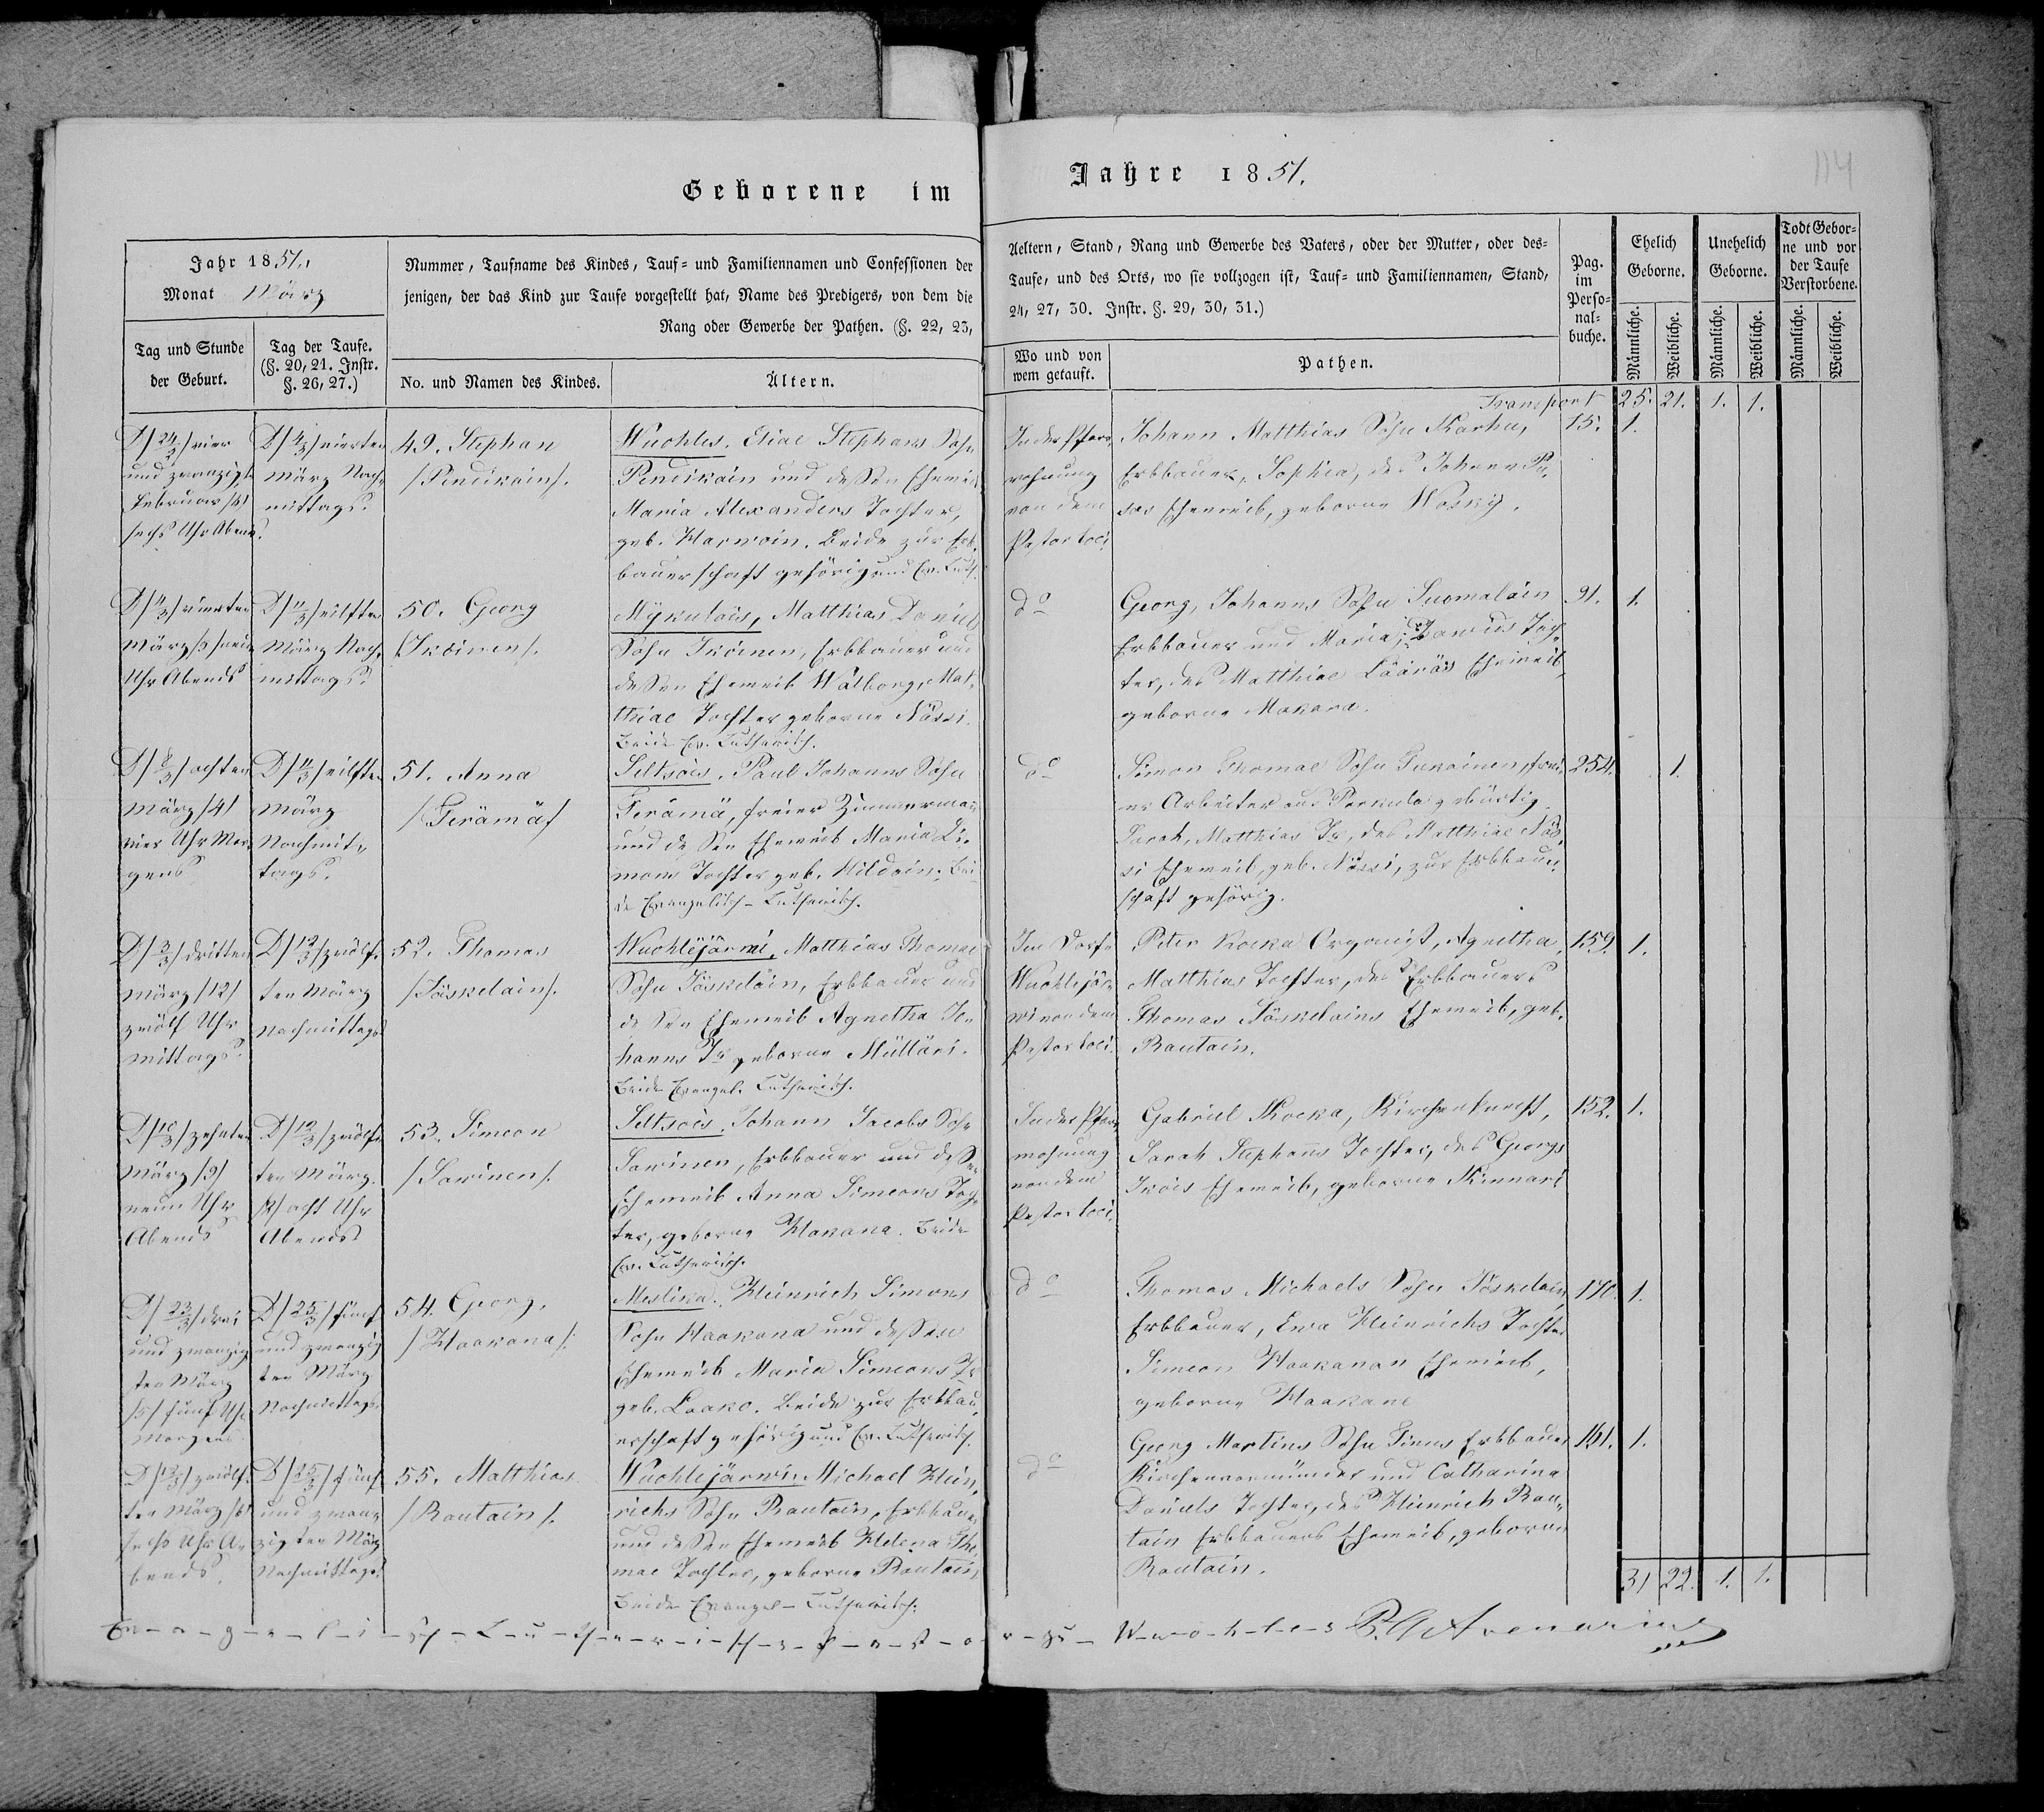 114
Geborene im Jahre 1851.
Jahr 1851.
Monat März
Nummer, Taufname des Kindes, Tauf= und Familiennamen und Confessionen der
jenigen, der das Kind zur Taufe vorgestellt hat, Name des Predigers, von dem die
Rang oder Gewerbe der Pathen. (§. 22, 23,
Tag und Stunde
der Geburt.
Tag der Taufe.
(§. 20, 21. Instr.
§. 26, 27.)
No. und Namen des Kindes.
Ältern.
Aeltern, Stand, Rang und Gewerbe des Vaters, oder der Mutter, oder des=
Taufe, und des Orts, wo sie vollzogen ist, Tauf= und Familiennamen, Stand,
24, 27, 30. Instr. §. 29, 30, 31.)
Wo und von
wem getauft.
Pathen.
Pag.
im
Perso=
nal=
buche.
Ehelich
Geborne.
Unehelich
Geborne.
Todt Gebor=
ne und vor
der Taufe
Verstorbene.
Männliche.
Weibliche.
Männliche.
Weibliche.
Männliche.
Weibliche.
Transport 25. 21. 1. 1.
D/ 24/2 / vier
und zwanzigst
Februar /6/
sechs Uhr Abends.
D/ 4/3 / vierten
März Nach-
mittags.
49. Stephan
/Pendikain/.
Wuohles. Eliae Stephans Sohn
Pendikain und dessen Eheweib
Maria Alexanders Tochter,
geb. Harwoin. Beide zur Erb-
bauerschaft gehörig und Ev. Luth.
In der Pfarr-
wohnung
von dem
Pastor loci
Johann Matthias Sohn Karhu,
Erbbauer, Sophia, des Johann Pu-
sas Eheweib, geborne Wosky.
15. 1.
D/ 4/3 / vierten
März /9/ neun
Uhr Abends
D/ 11/3 / eilften
März Nach-
mittags.
50. Georg
/Ikoinen/.
Mykulois, Matthias Daniels
Sohn Ikoinen, Erbbauer und
dessen Eheweib Walborg, Mat-
thiae Tochter geborne Nässi.
Beide Ev. Lutherisch.
do
Georg, Johanns Sohn Suomalain
Erbbauer und Maria, Toch-
ter, des Matthiae Lääräs Eheweib,
geborne Makara.
91. 1.
D/ 8/3 / achten
März /4/
vier Uhr Mor-
gens
D/ 11/3 / eilften
März
Nachmit-
tags.
51. Anna
/Terämä/
Seltsois. Paul Johanns Sohn
Terämä, freier Zimmermann
und dessen Eheweib Maria Si-
mons Tochter geb. Hildain. Bei-
de Evangelisch-Lutherisch.
do
Simon Thomae Sohn Tukainen, frei-
er Arbeiter aus Perkula gebürtig.
Sarah, Matthias Tr, des Matthiae Näs-
si Eheweib, geb. Nässi, zur Erbbauer-
schaft gehörig.
254. 1.
D/ 3/3 / dritten
März /12/
zwölf Uhr
mittags.
D/ 12/3 / zwölf-
ten März
Nachmittags
52. Thomas
/Jäskelain/.
Wuohlejärwi. Matthias Thomae
Sohn Jöskeläin, Erbbauer und
dessen Eheweib Agnetha Jo-
hanns Tr geborne Mülläri.
Beide Evangel. Lutherisch.
Im Dorfe
Wuohlejär-
wi von dem
Pastor loci.
Peter Kocka Organist, Agnetha
Matthias Tochter, des Erbbauers
Thomas Jöskelains Eheweib, geb.
Rautain.
159. 1.
D/ 10/3 / zehnten
März /9/
neun Uhr
Abends
D/ 12/3 / zwölf-
ten März.
/8/ acht Uhr
Abends
53. Simeon
/Sawinen/.
Seltsois. Johann Jacobs Sohn
Sawinen, Erbbauer und dessen
Eheweib Anna Simeons Toch-
ter, geborne Hakana. Beide
Ev. Lutherisch.
In der Pfarr-
wohnung
von dem
Pastor loci.
Gabriel Kocka, Kirchenknecht,
Sarah Stephans Tochter, des Georgs
Ikois Eheweib, geborne Kinnari
152. 1.
D/ 23/3 / drei
und zwanzig-
sten März
/5/ fünf Uhr
Morgens.
D/ 25/3 / fünf
und zwanzig-
ten März
Nachmittags.
54. Georg,
/Haakana/.
Mestika. Heinrich Simons
Sohn Haakana und dessen
Eheweib Maria Simeons Tr
geb. Laako. Beide zur Erbbau-
erschaft gehörig und Ev. Lutherisch.
do
Thomas Michaels Sohn Jöskelain,
Erbbauer, Ewa Heinrichs Tochter
Simeon Haakanan Eheweib,
geborne Haakane
170. 1.
D/ 12/3 / zwölf-
ten März /6/
sechs Uhr A-
bends.
D/ 25/3 / fünf
und zwan-
zigten März
Nachmittags.
55. Matthias
/Rautain/.
Wuohlejärwi. Michael Hein-
richs Sohn Rautain, Erbbauer
und dessen Eheweib Helena Tho-
mae Tochter, geborne Rautain,
Beide Evangel-Lutherisch.
do
Georg Martins Sohn Erbbauer
Kirchenvormünder und Catharina
Daniels Tochter, des Heinrich Rau-
tain Erbbauers Eheweib, geborne
Rautain.
161. 1.
31 22. 1. 1.
Ev-a-n-g-e-l-i-sch-L-u-th-e-r-i-sch-e-r P-a-s-t-o-r zu W-u-o-h-l-e-s P. G. Avenarius